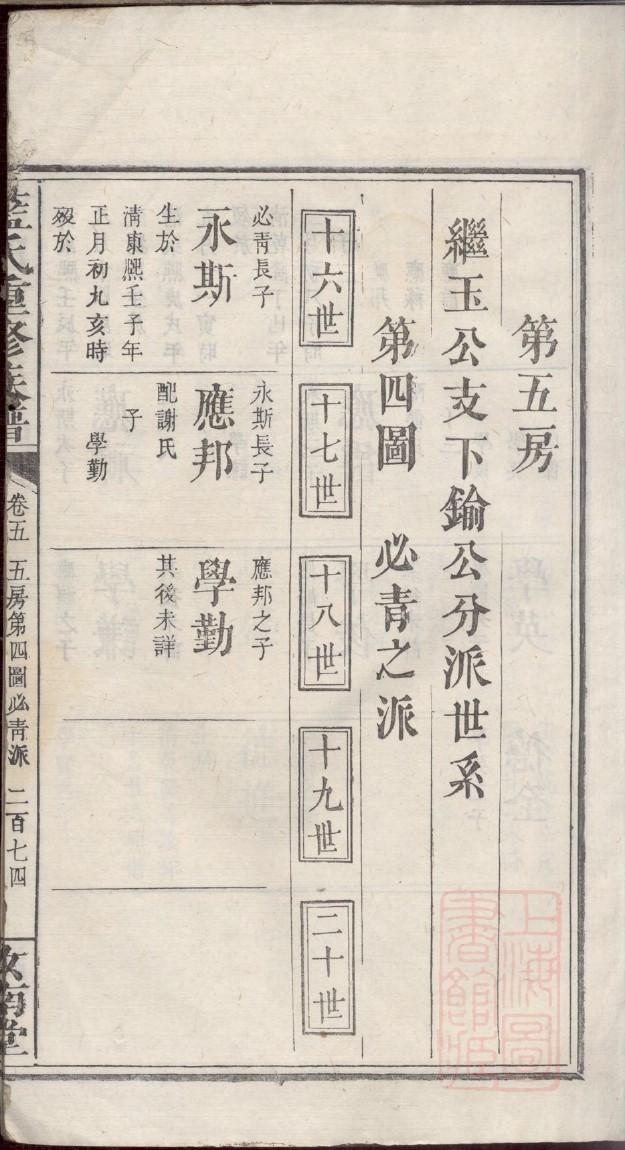 第五房
繼玉公支下鍮公分派世系
第四圖 必青之派
十六世
十七世
十八世
十九世
二十世
必青長子
永斯
生於
清康熈壬子年
正月初九亥時
歿於
永斯長子
應邦
配謝氏
子
學勤
應邦之子
學勤
其後未詳
氏重修族譜
卷五 五房第四圖必青派 二百七四
堂
上海圖
書館藏